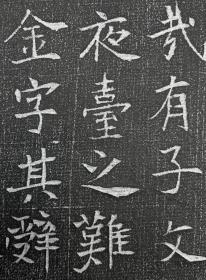 哉有子文
夜臺之難
金字其辭